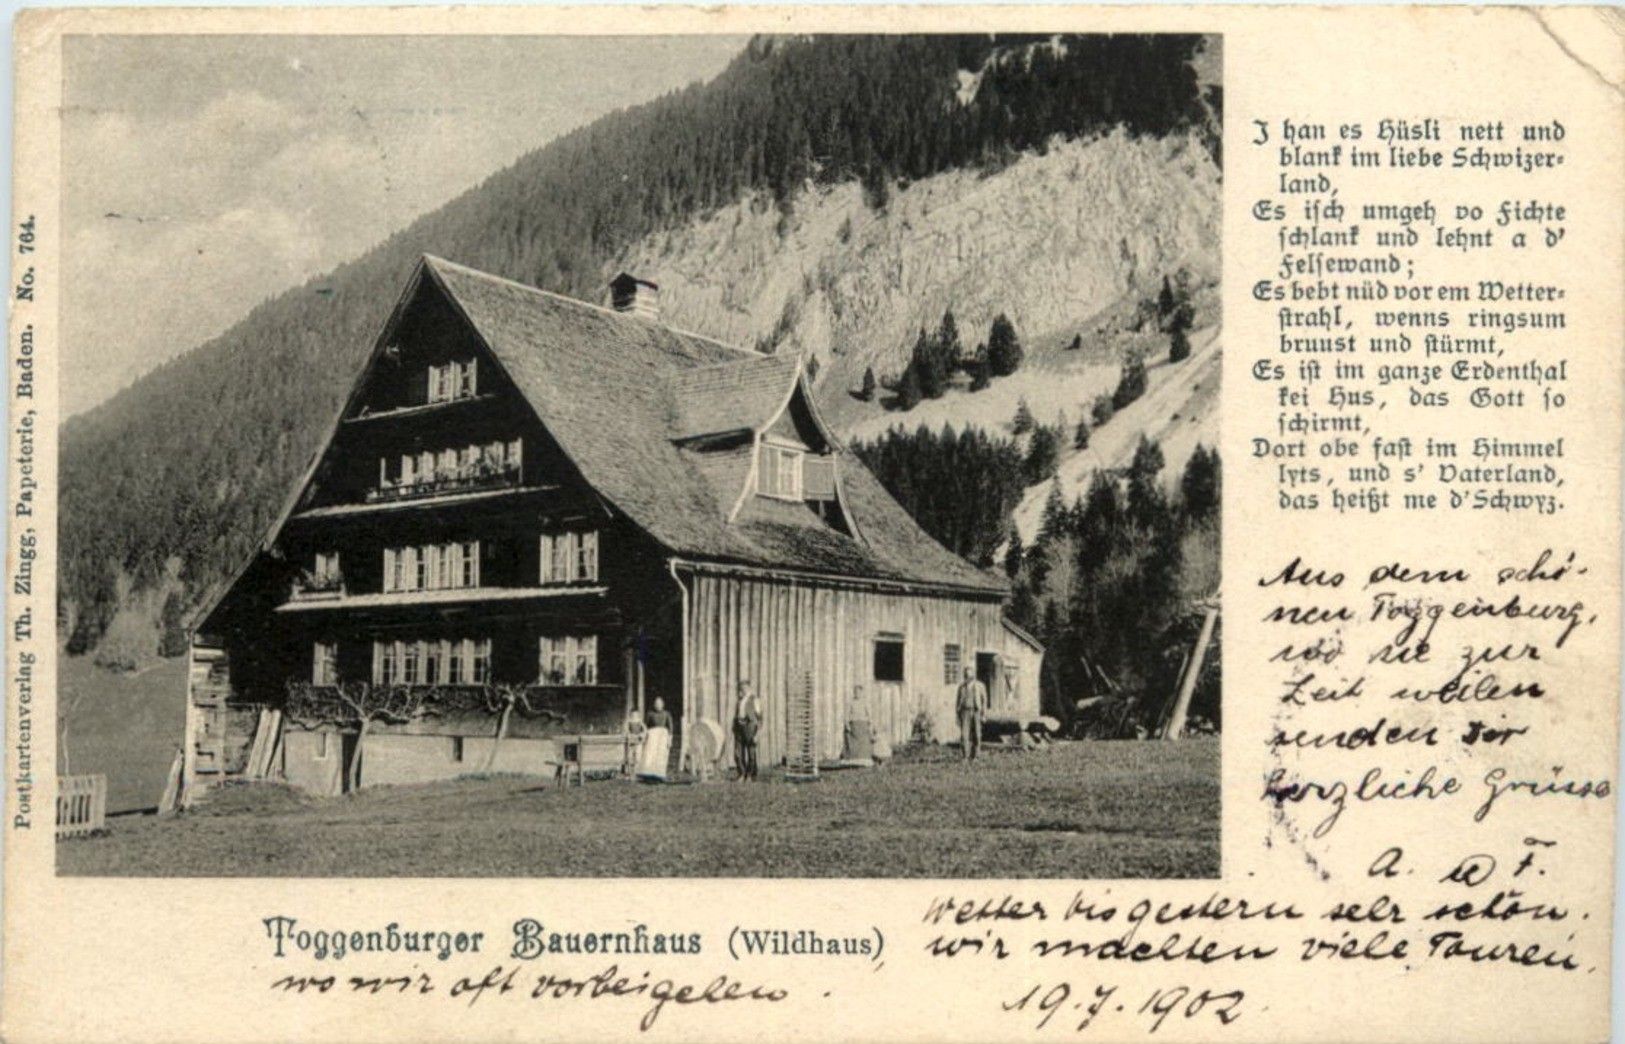 Postkartenverlag Th. Zingg, Papeterie, Baden. No. 764.
I han es Hüsli nett und
blank im liebe Schwizer-
land,
Es isch umgeh vo Fichte
schlank und lehnt a d'
Felsewand;
Es bebt nüd vor em Wetter-
strahl, wenns ringsum
bruust und stürmt,
Es ist im ganze Erdenthal
kei Hus, das Gott so
schirmt,
Dort obe fast im Himmel
lyts, und s' Vaterland,
das heißt me d'Schwyz.
Aus dem schö-
nen Toggenburg,
wo sie zur
Zeit weilen
senden Dir
herzliche Grüsse
A. F.
Toggenburger Bauernhaus (Wildhaus),
wo wir oft vorbeigehen.
Wetter bis gestern sehr schön.
wir machten viele Touren.
19.7.1902